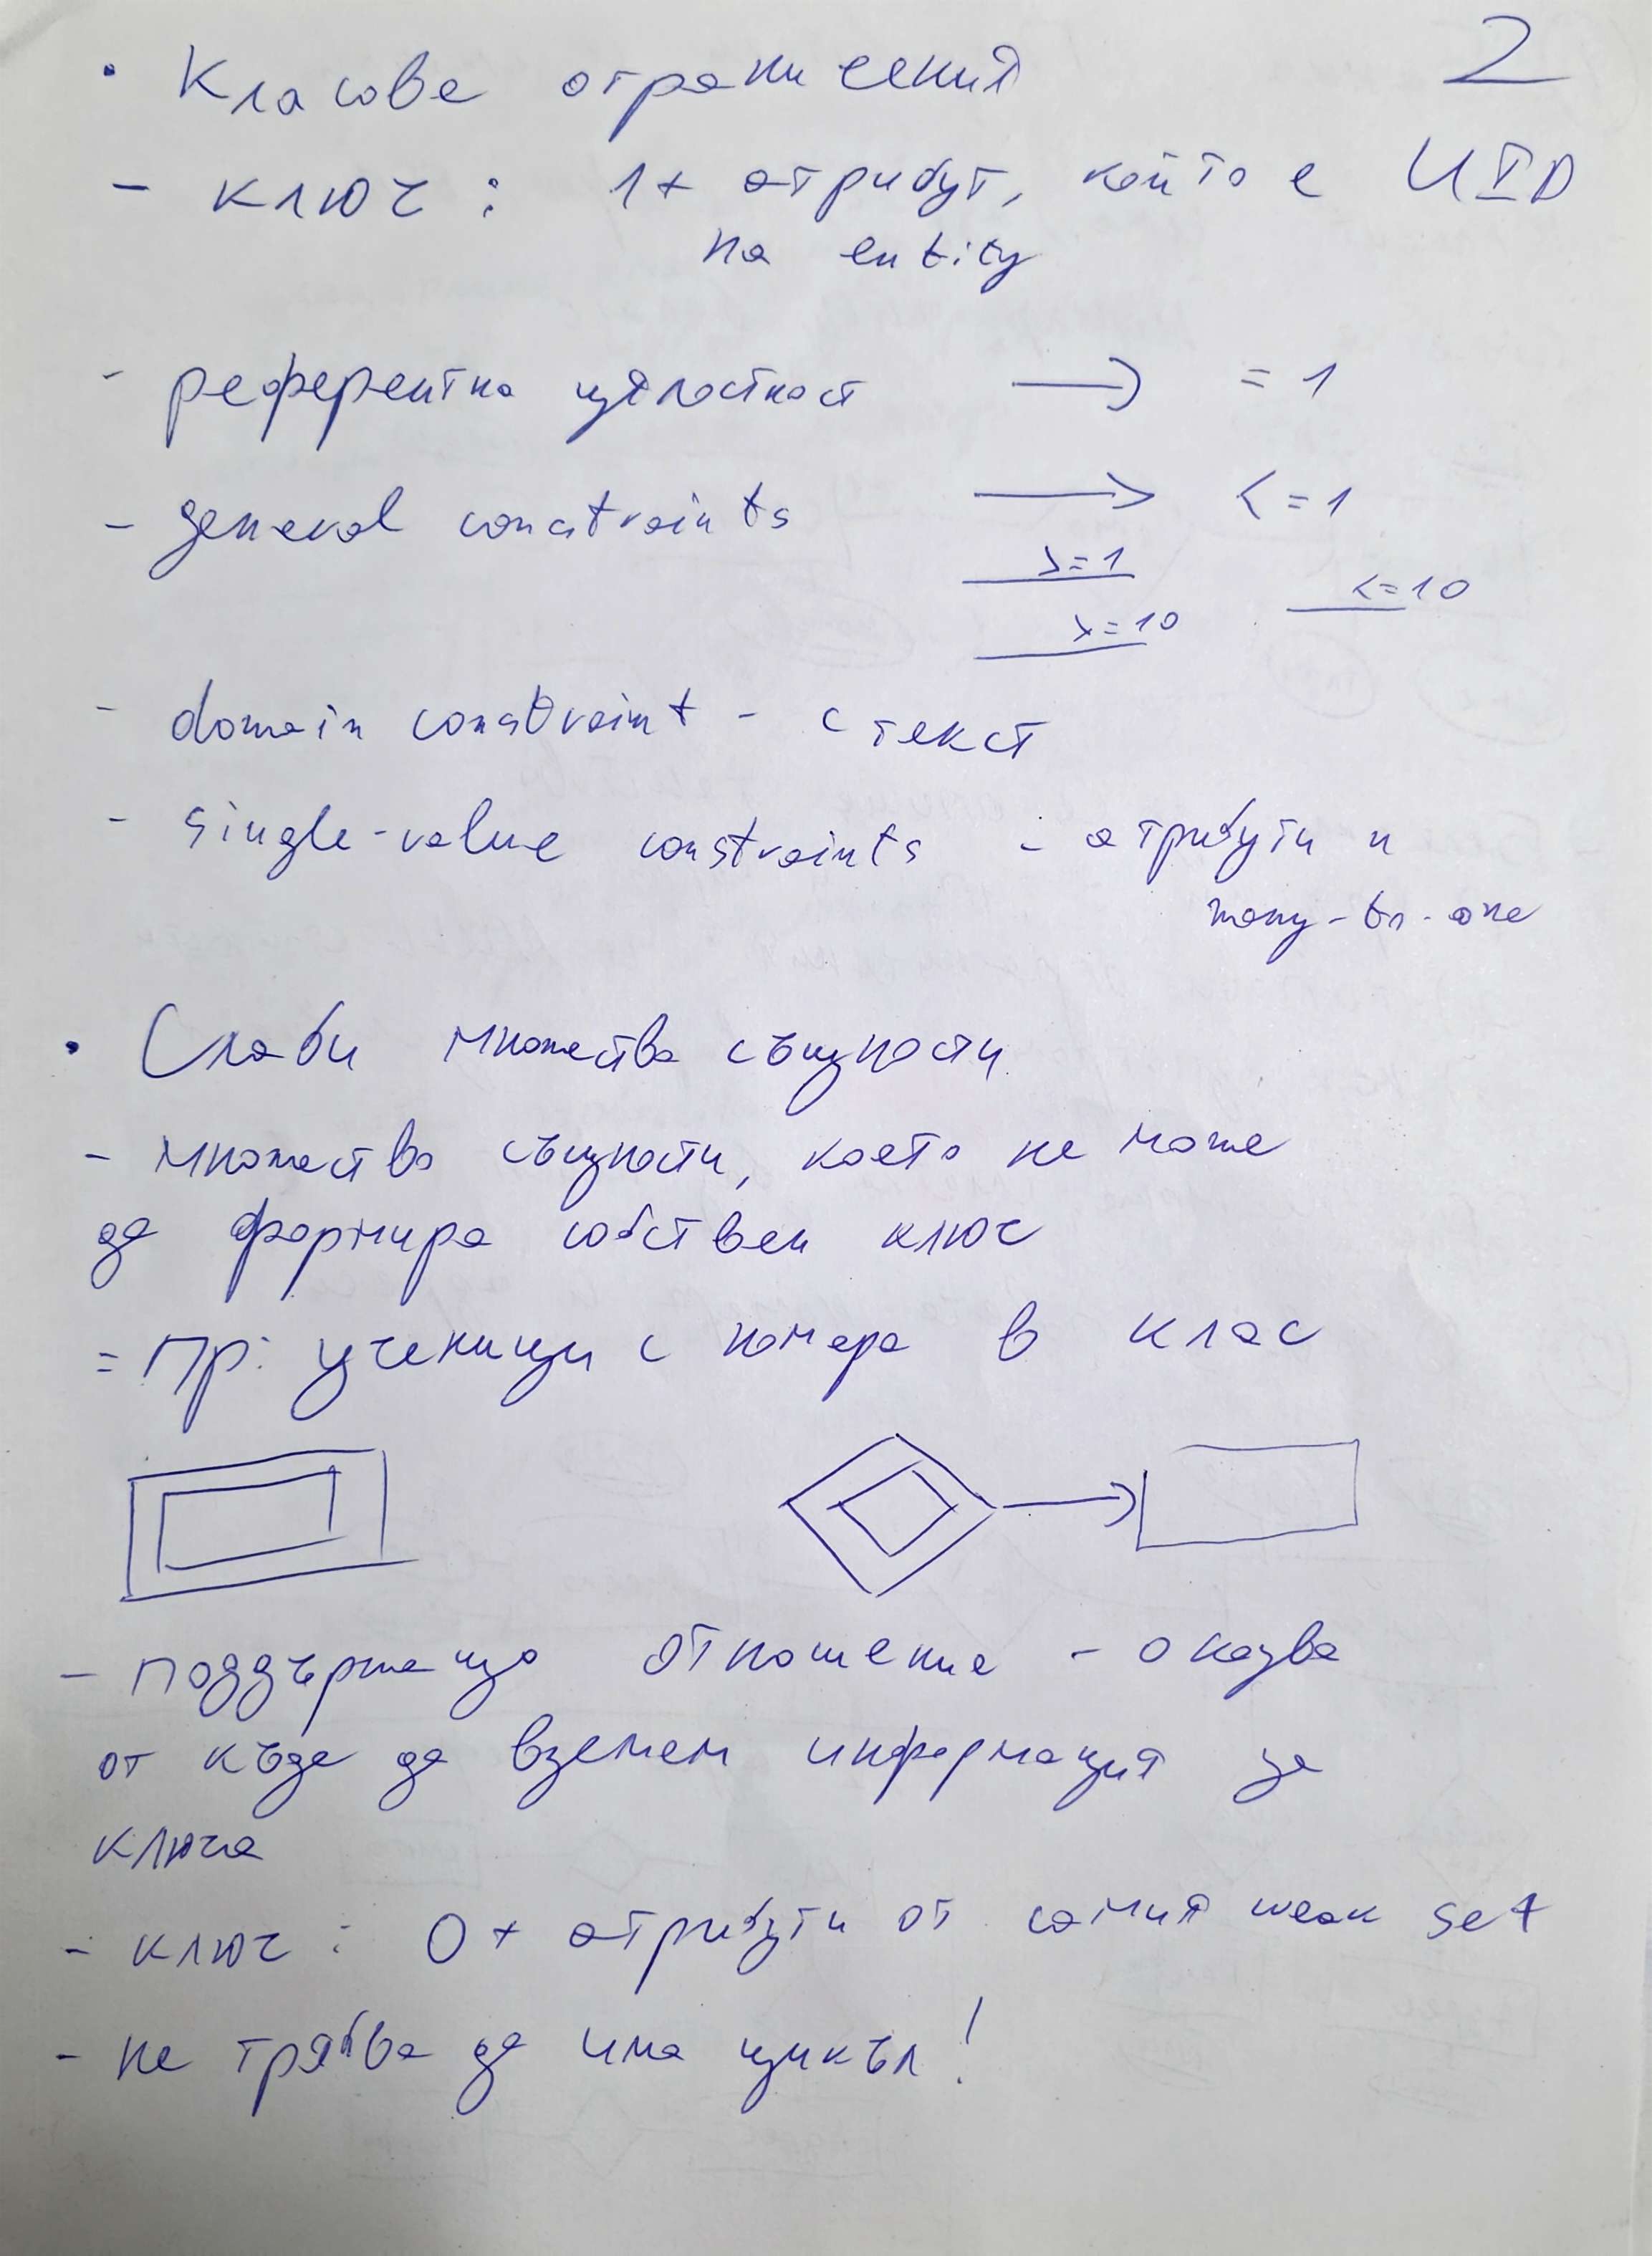 2
• Класове ограничения
- ключ : 1+ атрибут, който е UID
на entity
- референтна цялостност → = 1
- general constraints → <= 1
>=1
<=10
>=10
- domain constraint - с текст
- single-value constraints - атрибути и
many-to-one
• Слаби множества същности
- множество същности, което не може
да формира собствен ключ
= Пр: ученици с номера в клас
- поддържащо отношение - оказва
от къде да вземем информация за
ключа
- ключ : 0+ атрибути от самия weak set
- не трябва да има цикъл!